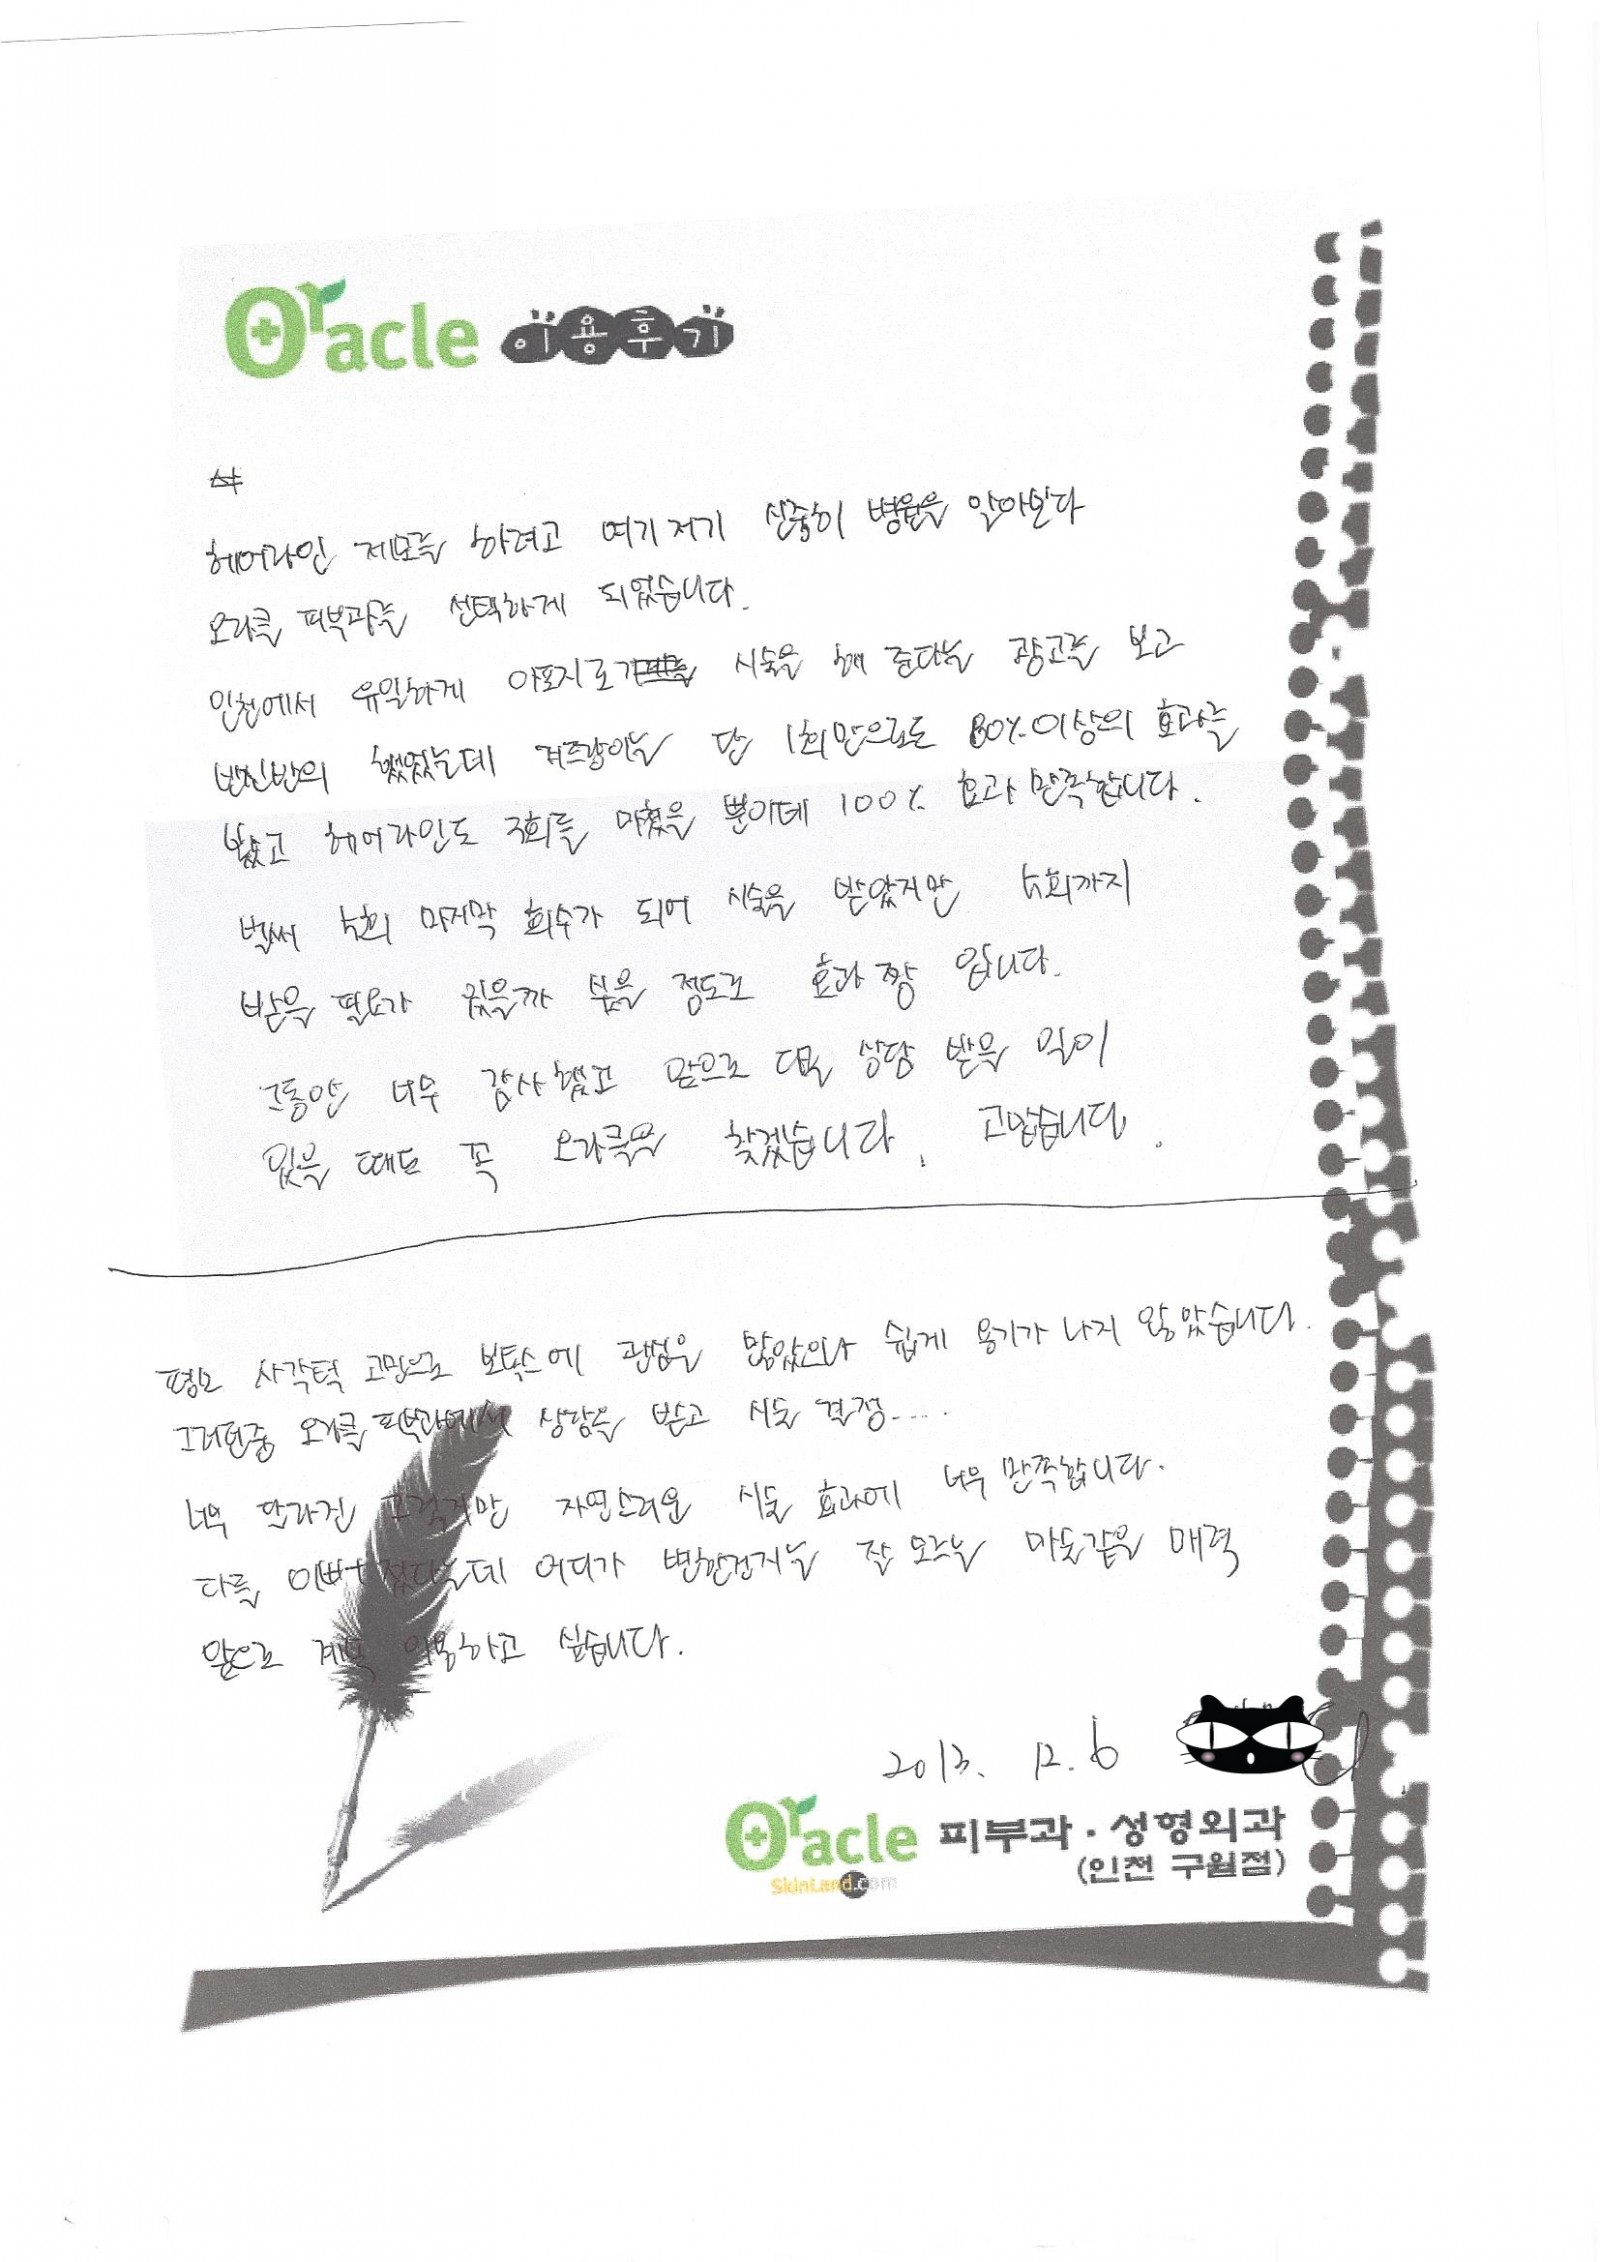 Oracle 이용후기
헤어라인 제모를 하려고 여기저기 신중히 병원을 알아보다
오라클 피부과를 선택하게 되었습니다.
인천에서 유일하게 아포지로 시술을 해 준다는 광고를 보고
반신반의 했었는데 겨드랑이는 단 1회만으로도 80%이상의 효과를
봤고 헤어라인도 3회를 마쳤을 뿐이데 100% 효과 만족합니다.
벌써 5회 마지막 회수가 되어 시술을 받았지만 5회까지
받을 필요가 있을까 싶을 정도로 효과 짱 입니다.
그동안 너무 감사했고 앞으로 다른 상담 받을 일이
있을 때도 꼭 오라클을 찾겠습니다. 고맙습니다.
평소 사각턱 고민으로 보톡스에 관심은 많았으나 쉽게 용기가 나지 않았습니다.
그러던중 오라클 피부과에서 상담을 받고 시술 결정....
너무 달라진 자연스러운 시술 효과에 너무 만족합니다.
다들 이뻐졌다는데 어디가 변한건지는 잘 모르는 마술같은 매력
앞으로 계속 이용하고 싶습니다.
2013. 12. 6
Oracle 피부과·성형외과
SkinLand.com (인천 구월점)